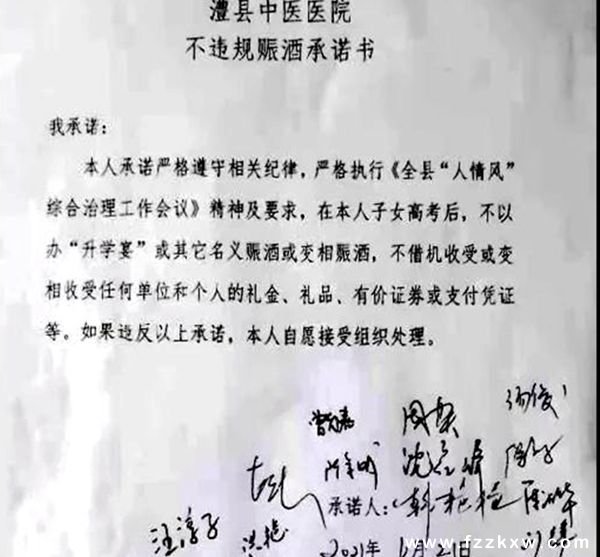 澧县中医医院
不违规赈酒承诺书
我承诺：
本人承诺严格遵守相关纪律，严格执行《全县“人情风”
综合治理工作会议》精神及要求，在本人子女高考后，不以
办“升学宴”或其它名义赈酒或变相赈酒，不借机收受或变
相收受任何单位和个人的礼金、礼品、有价证券或支付凭证
等。如果违反以上承诺，本人自愿接受组织处理。
承诺人：
2021年
www.fzzkxw.com